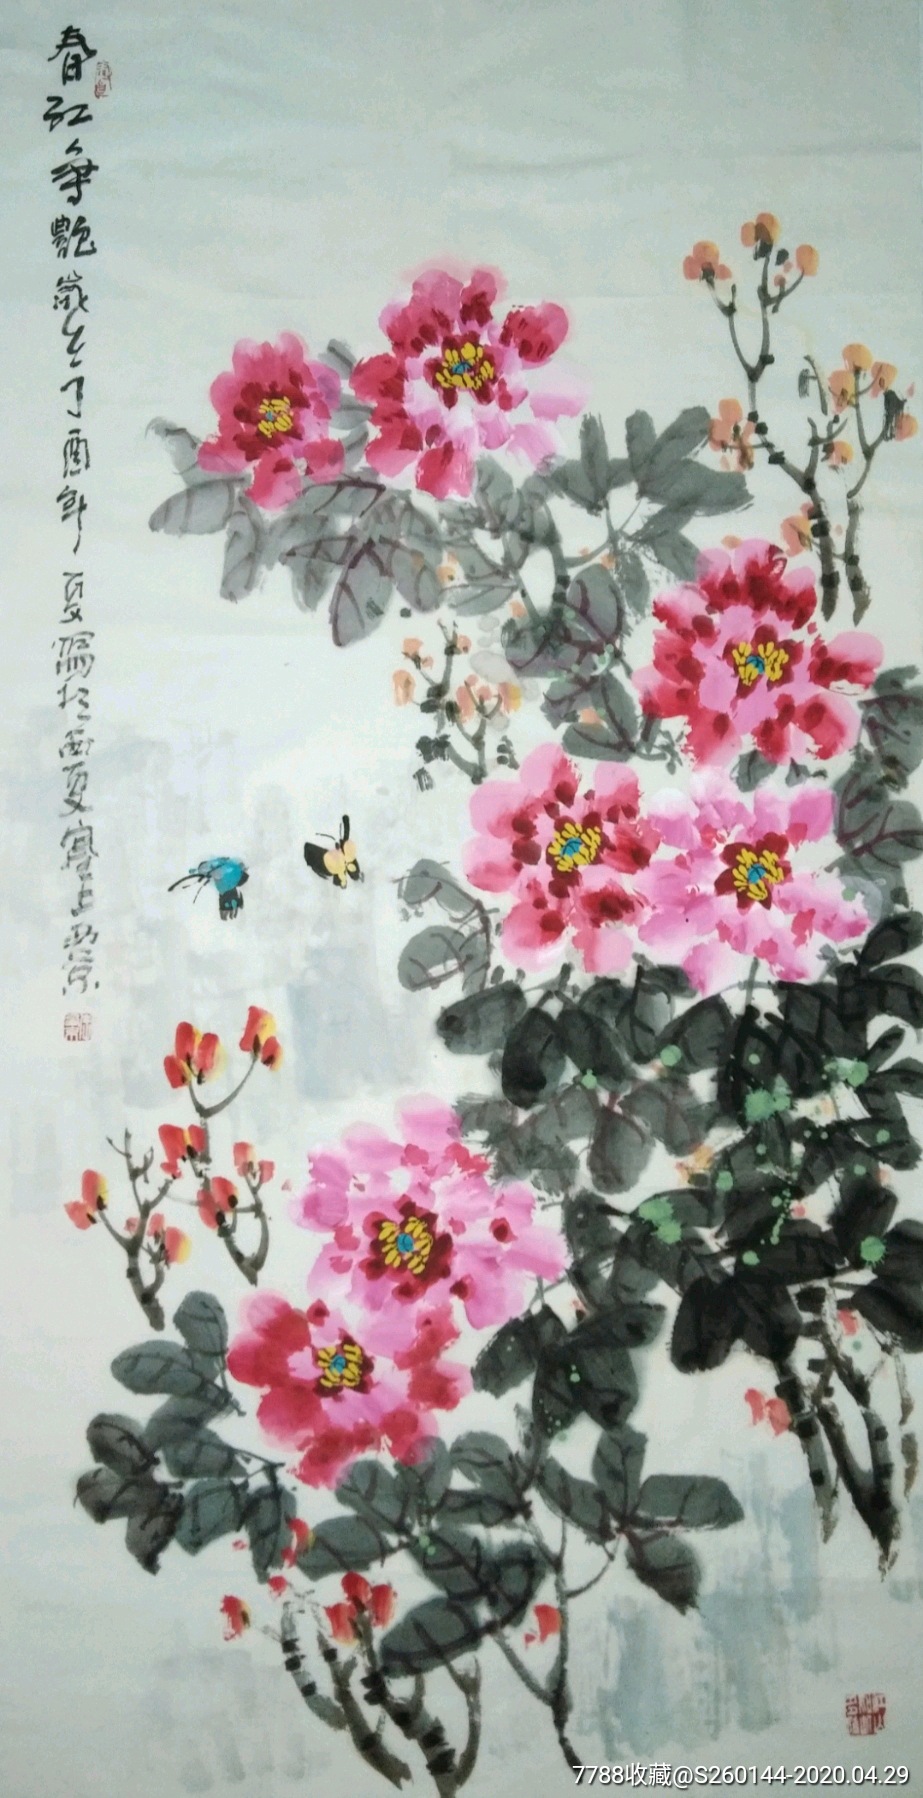 春红争艳岁在丁酉年夏写于西夏塞上西京
7788收藏@S260144-2020.04.29